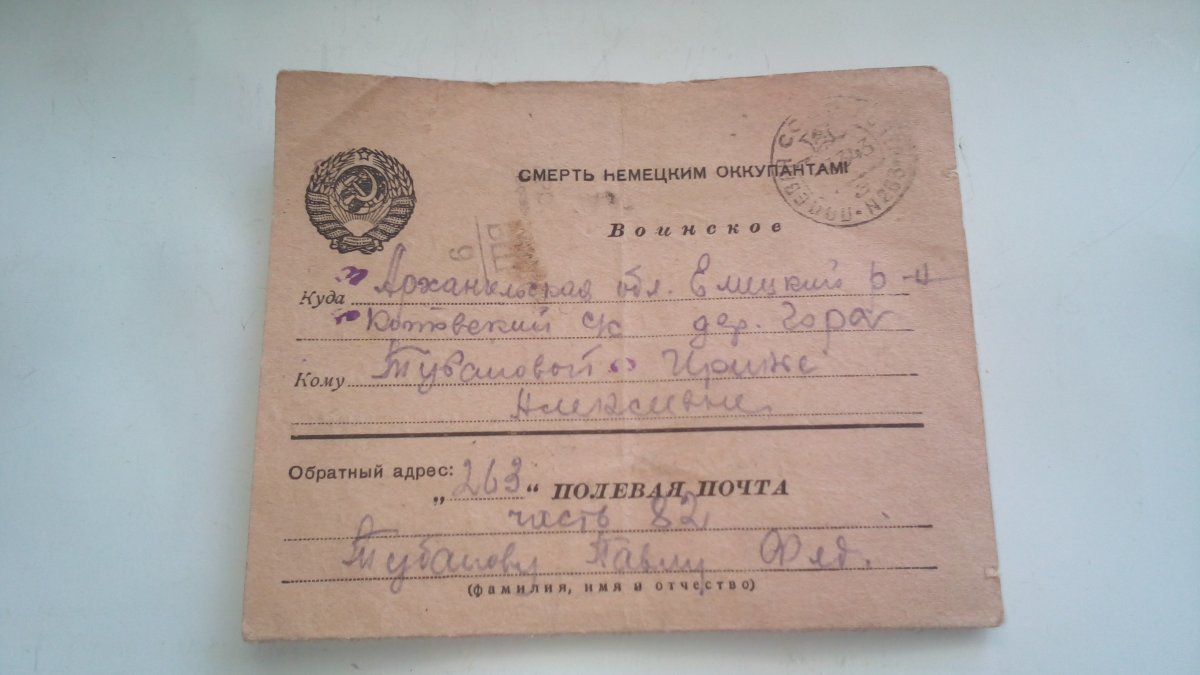 СМЕРТЬ НЕМЕЦКИМ ОККУПАНТАМ!
Воинское
Куда Архангельская обл. Емецкий р-н
с/с дер. Гора
Кому Тубановой Ирине
Алексеевне
Обратный адрес:
„263“ ПОЛЕВАЯ ПОЧТА
часть 82
Тубанову Павлу Фед.
(фамилия, имя и отчество)